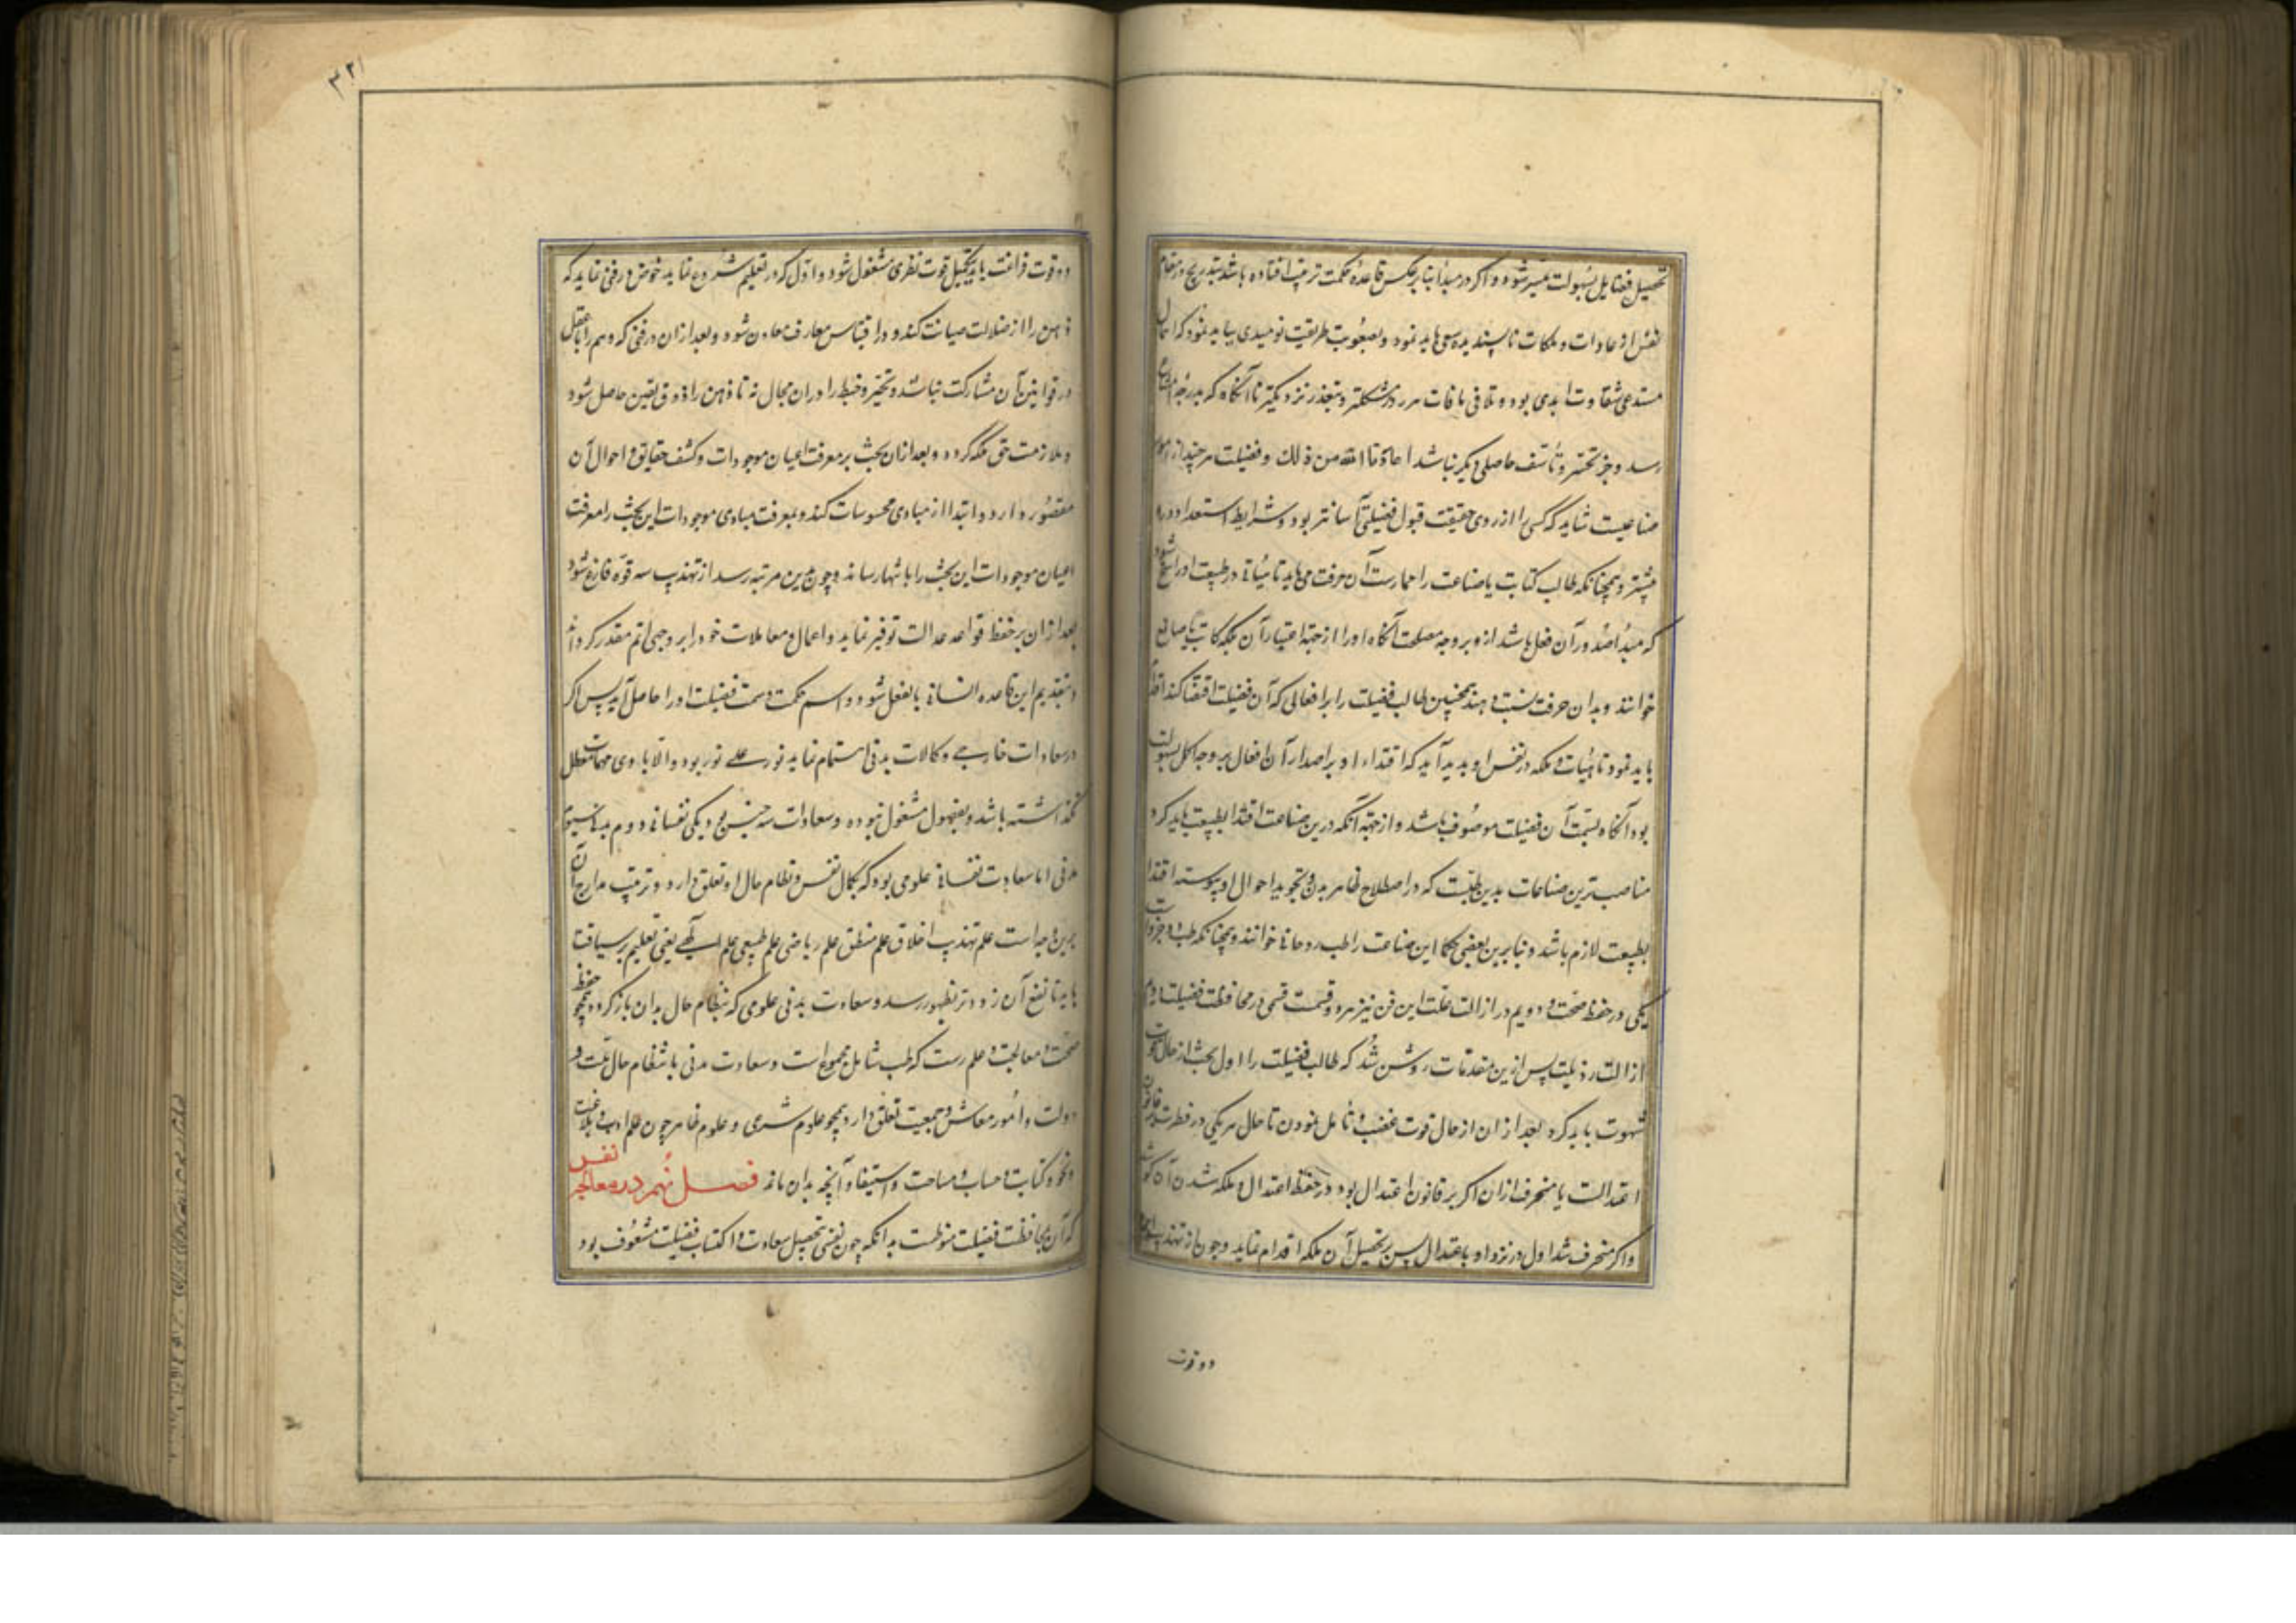 تحصیل فضایل بسهولت میسر شود و اگر در مبدأ بنا بر عکس قاعدهٔ حکمت تربیت افتاده باشد بتدریج در فطام
نفس از عادات و ملکات ناپسندیده سعی باید نمود و بصعوبت طریقت نومیدی نباید نمود که اهمال
مستدعی شقاوت ابدی بود و تلافی مافات هر روز مشکلتر و بتعذر نزدیکتر تا آنگاه که بدرجهٔ امتناع
رسد و جز تحسر و تأسف حاصلی دیگر نباشد اعاذنا الله من ذلک و فضیلت هر چند از امور
صناعیست شاید که کسی را از روی حقیقت قبول فضیلتی آسانتر بود و شرایط استعداد درو
بیشتر و همچنانکه طالب کتابت یا صناعت را ممارست آن حرفت می باید تا هیأتی در طبیعت او راسخ شود
که مبدأ صدور آن فعل باشد از و بر وجه مصلحت آنگاه او را از جهة اعتبار آن ملکه کاتب یا صانع
خوانند و بدان حرفت نسبت دهند همچنین طالب فضیلت را بر افعالی که آن فضیلت اقتضا کند اقدام
باید نمود تا هیأت و ملکه در نفس او پدید آید که اقتدار او بر اصدار آن افعال بر وجه اکمل بسهولت
بود آنگاه بسمت آن فضیلت موصوف باشد و از جهة آنکه درین صناعت اقتدا بطبیعت باید کرد
مناصب ترین صناعات بدین طبست که در اصطلاح ظاهر بدن و تجوید احوال او پیوسته اقتدا
بطبیعت لازم باشد و بنابرین بعضی حکما این صناعت را طب روحانی خوانند و همچنانکه طب دو جزوست
یکی در حفظ صحت و دویم در ازالت علت این فن نیز هم دو قسمت قسمی در محافظت فضیلت و دوم
ازالت رذیلت پس ازین مقدمات روشن شد که طالب فضیلت را اول بحث از حال قوت
شهوت باید کرد بعد از ان از حال قوت غضب و تأمل نمودن تا حال هر یکی در فطرت بر قانون
اعتدالست یا منحرف از ان اگر بر قانون اعتدال بود در حفظ اعتدال و ملکه شدن آن کوشد
و اگر منحرف شد اول در نزد او باعتدال پس بر تحصیل آن ملکه اقدام نماید و چون از تهذیب این
دو قوت
۳۲۱
دو قوت فراغت یابد بتکمیل قوت نظری مشغول شود و اول که در تعلیم شروع نماید خوض در فنی نماید که
ذهن را از ضلالت صیانت کند و در اقتباس معارف معاون شود و بعد از ان در فنی که وهم را با عقل
در قوانین آن مشارکت نباشد و تحیر و خبط را در ان مجال نه تا ذهن را ذوق یقین حاصل شود
و ملازمت حق ملکه گردد و بعد از ان بحث بر معرفت اعیان موجودات و کشف حقایق و احوال آن
مقصور دارد و ابتدا از مبادی محسوسات کند و بمعرفت مبادی موجودات این بحث را معرفت
اعیان موجودات این بحث را بانتها رساند و چون بدین مرتبه رسد از تهذیب سه قوه فارغ شود
بعد از ان بر حفظ قواعد عدالت توفیر نماید و اعمال و معاملات خود را بر وجهی اتم مقدر گرداند
و بتقدیم این قاعده انسانی بالفعل شود و اسم حکمت و سمت فضیلت او را حاصل آید پس اگر
در سعادات خارجی و کمالات بدنی اهتمام نماید نور علی نور بود و الا باری مهمات معطل
نگذاشته باشد و بفضول مشغول نبوده و سعادات سه جنس بود یکی نفسانی دوم بدنی سیوم
مدنی اما سعادت نفسانی علومی بود که بکمال نفس و نظام حال او تعلق دارد و ترتیب مدارج آن
برین وجه است علم تهذیب اخلاق علم منطق علم ریاضی علم طبیعی علم الهی یعنی تعلیم بر سیاقت
باید تا نفع آن زودتر بظهور رسد و سعادت بدنی علومی که بنظام حال بدان باز گردد همچو حفظ
صحت و معالجت و علم زینت که طب شامل مجموع است و سعادت مدنی بانتظام حال ملت و
دولت و امور معاش و جمعیت تعلق دارد همچو علوم شرعی و علوم ظاهر چون علم ادب و بلاغت
و نحو و کتابت و حساب و مساحت و استیفا و آنچه بدان ماند فصل نهم در معالجه نفس
که آن بمحافظت فضیلت منوطست بدانکه چون نفسی تحصیل سعادت و اکتساب فضیلت مشعوف بود